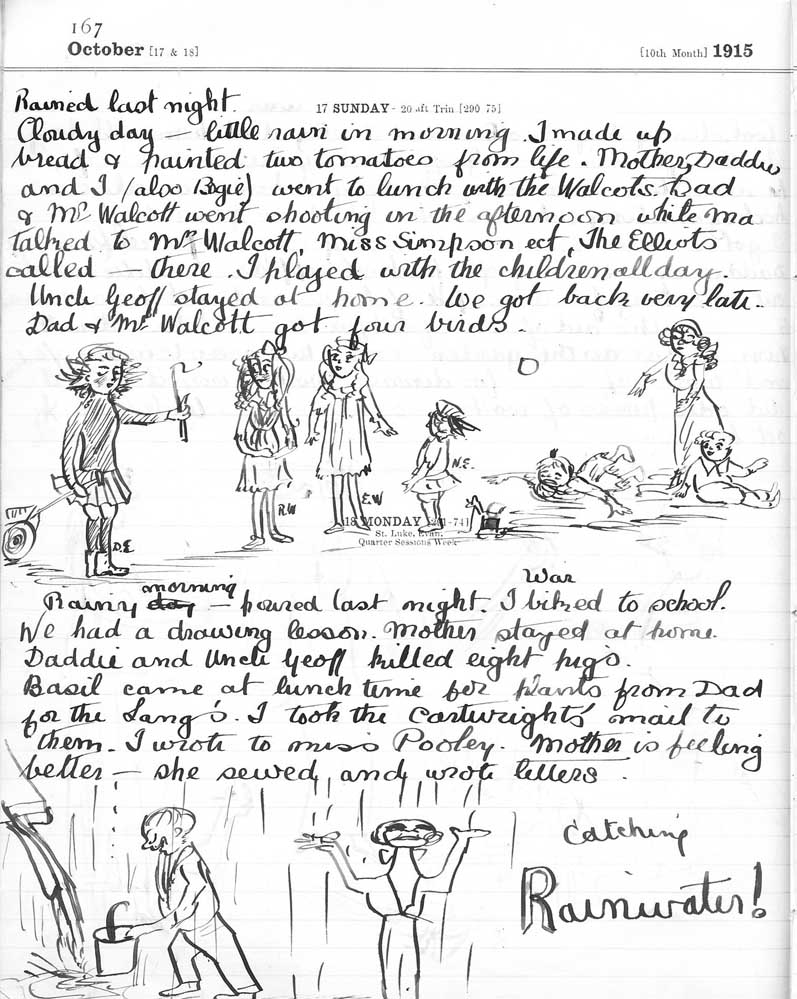 167
October [17 & 18] [10th Month] 1915
Rained last night.
17 SUNDAY - 20 aft Trin [290-75]
Cloudy day — little rain in morning. I made up
bread & painted two tomatoes from life. Mother, Daddie
and I (also Bogie) went to lunch with the Walcots. Dad
& Mr Walcott went shooting in the afternoon while Ma
talked to Mrs Walcott, Miss Simpson ect, The Elliots
called — there. I played with the children all day.
Uncle Geoff stayed at home. We got back very late.
Dad & Mr Walcott got four birds.
D.E.
R.W
E.W
N.E.
18 MONDAY [291-74]
St. Luke, Evan.
Quarter Sessions Week
War
Rainy day morning — poured last night. I biked to school.
We had a drawing lesson. Mother stayed at home.
Daddie and Uncle Geoff killed eight pigs.
Basil came at lunch time for plants from Dad
for the Lang's. I took the Cartwrights' mail to
them. I wrote to Miss Pooley. Mother is feeling
better — she sewed and wrote letters.
Catching
Rainwater!